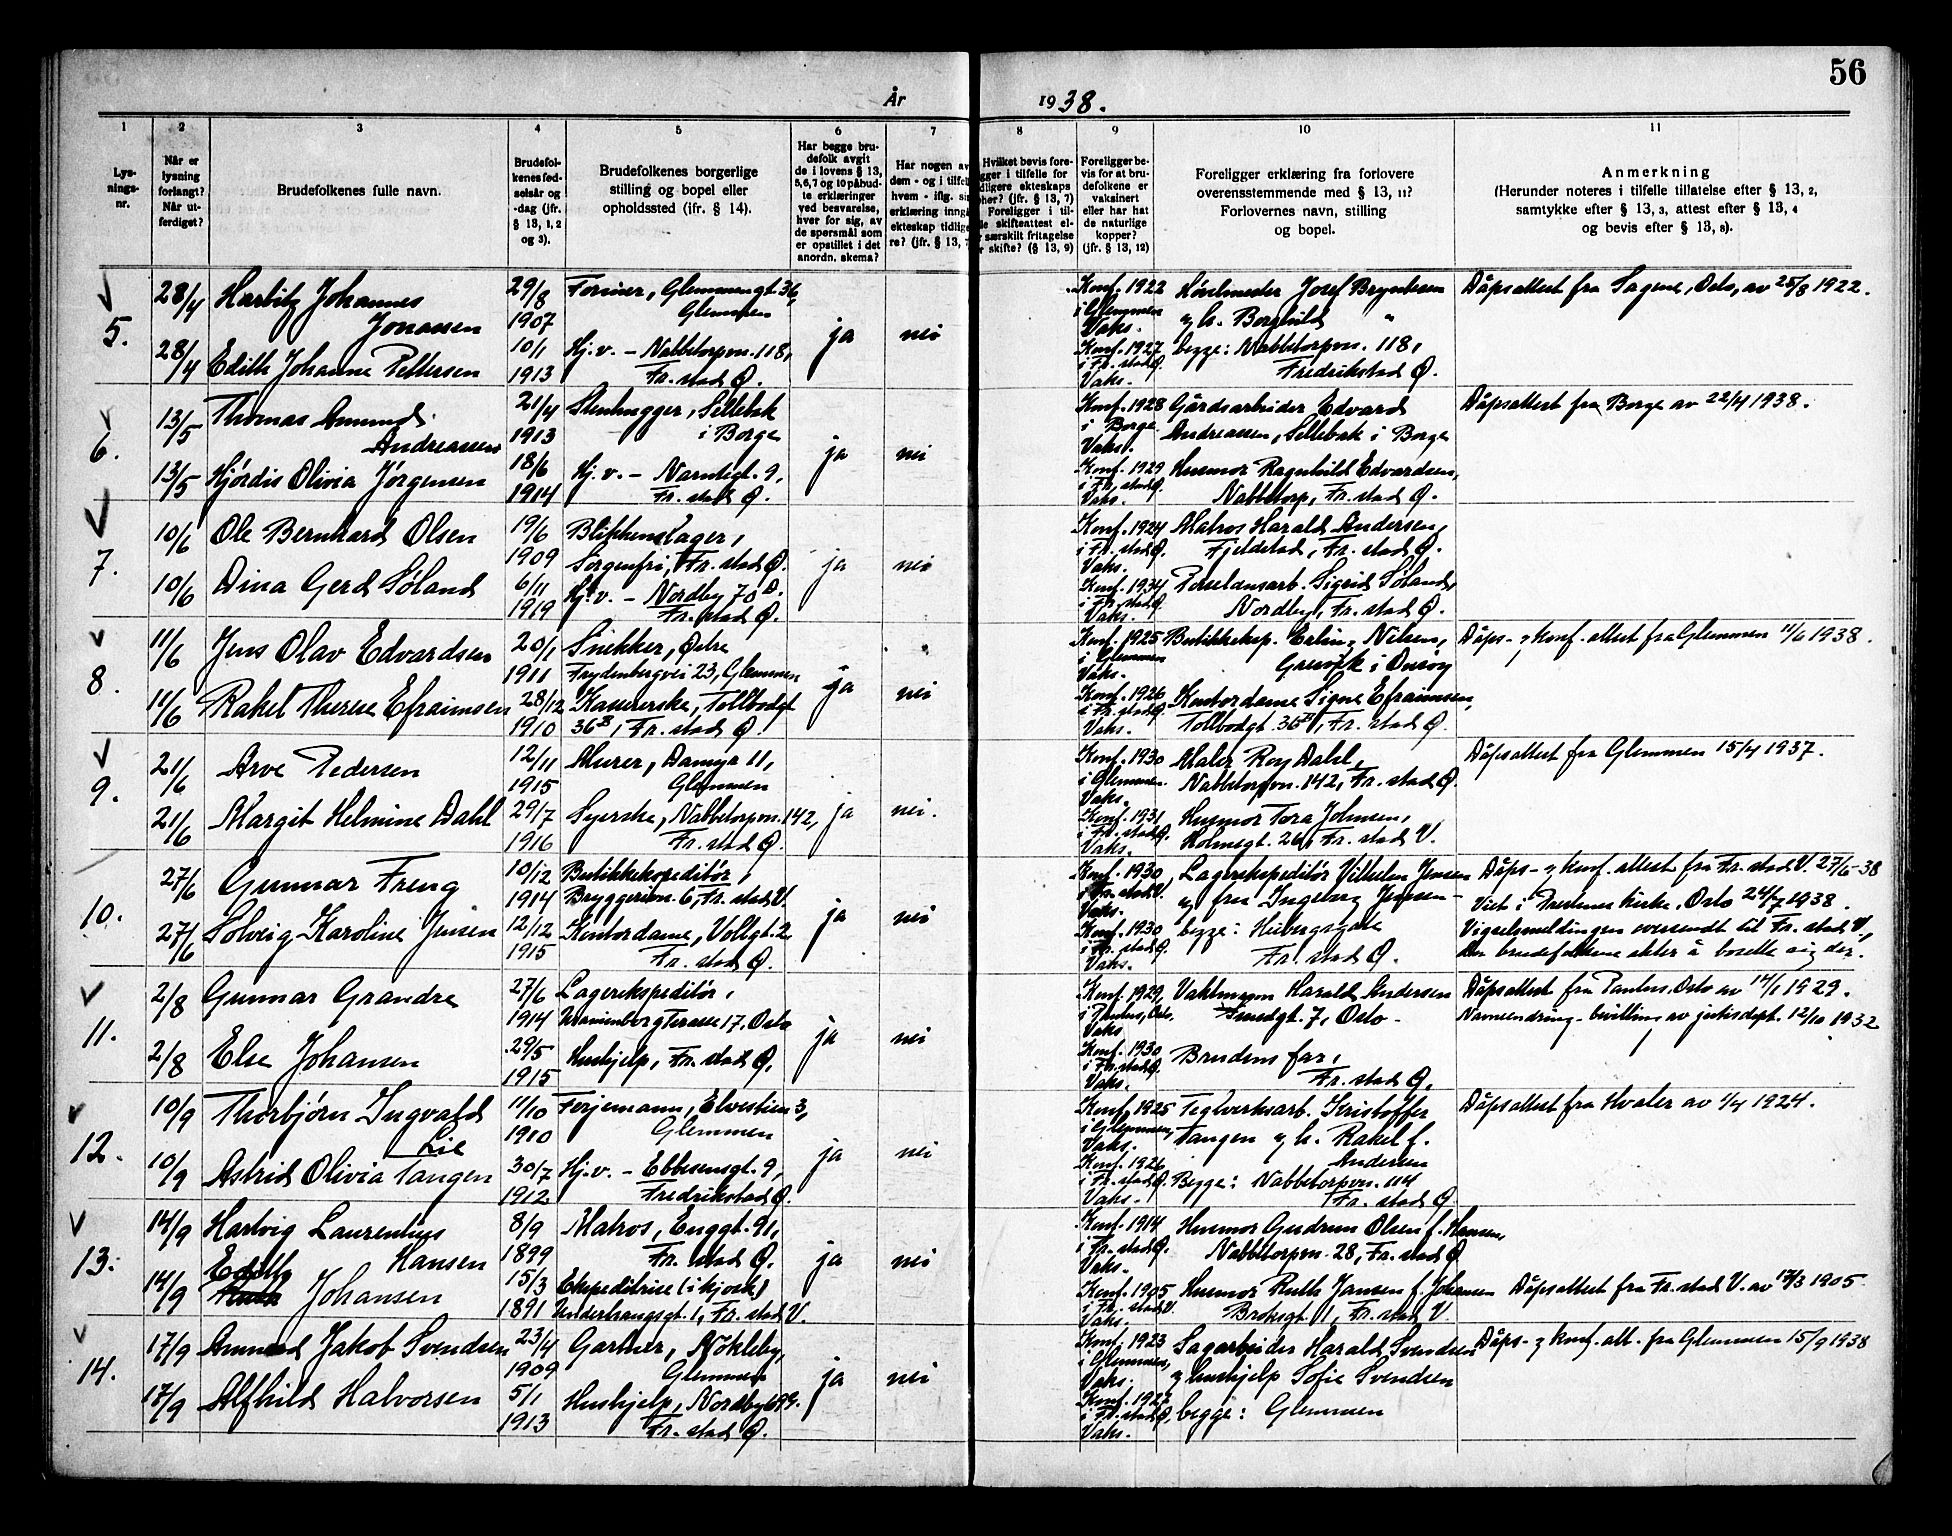 56
År 1938.
1 2 3 4 5 6 7 8 9 10 11
Lys-
nings-
nr.
Når er
lysning
forlangt?
Når ut-
ferdiget?
Brudefolkenes fulle navn.
Brudefol-
kenes fød-
selsår og
-dag (jfr.
§ 13, 1, 2
og 3).
Brudefolkenes borgerlige
stilling og bopel eller
opholdssted (ifr. § 14).
Har begge bru-
defolk avgit
de i lovens § 13,
5,6,7 og 10 påbud-
te erklæringer
ved besvarelse,
hver for sig, av
de spørsmål som
er opstillet i det
anordn. skema?
Har nogen av
dem - og i tilfel
hvem - iflg. si
erklæring inng
ekteskap tidlig
re? (jfr. § 13, 7
Hvilket bevis fore-
gger i tilfelle for
dligere ekteskaps
pher? (jfr. § 13, 7)
Foreligger i til-
le skifteattest el-
r særskilt fritagelse
r skifte? (§ 13, 9)
Foreligger be-
vis for at bru-
defolkene er
vaksinert
eller har hat
de naturlige
kopper?
(jfr. § 13, 12)
Foreligger erklæring fra forlovere
overensstemmende med § 13, 11?
Forlovernes navn, stilling
og bopel.
Anmerkning
(Herunder noteres i tilfelle tillatelse efter § 13, 2,
samtykke efter § 13, 3, attest efter § 13, 4
og bevis efter § 13, 8).
5.
28/4 Harbitz Johannes
Jonassen
29/8
1907
Former, Glemmengt. 36,
Glemmen
28/4 Edith Johanne Pettersen
10/1
1913
Hj.v. - Nabbetorpvn. 118,
Fr.stad Ø.
ja nei
Konf. 1922
i Glemmen
Vaks.
Konf. 1927
i Fr.stad Ø.
Vaks.
Josef Bryntesen
og h. Borghild "
begge: Nabbetorpvn. 118,
Fredrikstad Ø.
Dåpsattest fra Sagene, Oslo, av 25/8 1922.
6.
13/5 Thomas Amund
Andreassen
21/4
1913
Stenhugger, Sellebak
i Borge
13/5 Hjördis Olivia Jörgensen
18/6
1914
Hj.v. - 9,
Fr.stad Ø.
ja nei
Konf. 1928
i Borge
Vaks.
Konf. 1929
i Fr.stad Ø.
Vaks.
Gårdsarbeider Edvard
Andreassen, Sellebak i Borge
Husmor Ragnhild Edvardsen,
Nabbetorp, Fr.stad Ø.
Dåpsattest fra Borge av 22/4 1938.
7.
10/6 Ole Bernhard Olsen
19/6
1909
Blikkenslager,
Sorgenfri, Fr.stad Ø.
10/6 Dina Gerd Söland
6/11
1919
Hj.v. - Nordby 70 D.
Fr.stad Ø.
ja nei
Konf. 1924
i Fr.stad Ø.
Vaks.
Konf. 1934
i Fr.stad Ø.
Vaks.
Matros Harald Andersen,
Fjeldstad, Fr.stad Ø.
Porselensarb. Sigrid Söland,
Nordby, Fr.stad Ø.
8.
11/6 Jens Olav Edvardsen
20/1
1911
Snekker, Østre
Frydenbergvei 23, Glemmen
11/6 Rakel Therese Efraimsen
28/12
1910
Kassererske, Tollbodgt
36 B, Fr.stad Ø.
ja nei
Konf. 1925
i Glemmen
Vaks.
Konf. 1926
i Fr.stad Ø.
Vaks.
Butikkeksp. Erling Nilsen,
Gressvik i Onsøy
Kontordame Signe Efraimsen,
Tollbodgt 36 B, Fr.stad Ø.
Dåps- og konf.attest fra Glemmen 11/6 1938.
9.
21/6 Arve Pedersen
12/11
1915
Murer, 11,
Glemmen
21/6 Margit Helmine Dahl
29/7
1916
Syerske, Nabbetorpvn. 142,
Fr.stad Ø.
ja nei.
Konf. 1930
i Glemmen.
Vaks.
Konf. 1931
i Fr.stad Ø.
Vaks.
Maler Roy Dahl,
Nabbetorpvn. 142, Fr.stad Ø.
Husmor Tora Johnsen,
Holmegt. 26, Fr.stad V.
Dåpsattest fra Glemmen 15/4 1937.
10.
27/6 Gunnar Freng
10/12
1914
Butikkekspeditör,
Bryggerivn. 6, Fr.stad V.
27/6 Solveig Karoline Jensen
12/12
1915
Kontordame, Vollgt. 2
Fr.stad Ø.
ja nei
Konf. 1930
i Fr.stad V.
Vaks.
Konf. 1930
i Fr.stad Ø.
Vaks.
Lagerekspeditör Vilhelm Jensen
og frue Ingeborg Jensen -
begge: Huibergsgate
Fr.stad Ø.
Dåps- og konf.attest fra Fr.stad V. 27/6-38
Viet i kirke, Oslo 24/7 1938.
Vigselsmeldingen oversendt til Fr.stad V.,
da brudefolkene akter å bosette sig der.
11.
2/8 Gunnar Grandre
27/6
1914
Lagerekspeditör,
Wranienborg Terasse 17, Oslo
2/8 Else Johansen
29/5
1915
Hushjelp, Fr.stad Ø.
ja nei
Konf. 1929
i Paulus, Oslo.
Vaks.
Konf. 1930
i Fr.stad Ø.
Vaks.
Vaktmann Harald Andersen
7, Oslo -
Brudens far,
Fr.stad Ø.
Dåpsattest fra Paulus, Oslo av 14/1 1929.
Navneendring-bevilling av justisdept. 12/10 1932
12.
10/9 Thorbjørn Ingvald
Lie
11/10
1910
Ferjemann, Elvestien 3,
Glemmen
10/9 Astrid Olivia Tangen
30/7
1912
Hj.v. - Ebbesensgt. 9,
Fredrikstad Ø.
ja nei
Konf. 1925
i Glemmen,
Vaks.
Konf. 1926
i Fr.stad Ø.
Vaks.
Teglverksarb. Kristoffer
Tangen og h. Rakel f.
Andersen
Begge: Nabbetorpvn. 114
Fr.stad Ø.
Dåpsattest fra Hvaler av 1/4 1924.
13.
14/9 Hartvig Laurentius
Hansen
8/9
1899
Matros, Enggt. 91,
Fr.stad Ø.
14/9 Edith Johansen
15/3
1891
Ekspeditrise (i kjosk)
1, Fr.stad V.
ja nei
Konf. 1914
i Fr.stad Ø.
Vaks.
Konf. 1905
i Fr.stad V.
Vaks.
Husmor Gudrun Olsen f. Hansen,
Nabbetorpvn. 28, Fr.stad Ø
Husmor Ruth Jansen f. Johansen
Broksgt 1, Fr.stad V.
Dåpsattest fra Fr.stad V. av 17/3 1905.
14.
17/9 Amund Jakob Svendsen
23/4
1909
Gartner, Nökleby,
Glemmen
17/9 Alfhild Halvorsen
5/1
1913
Hushjelp, Nordby 69.
Fr.stad Ø.
ja nei
Konf. 1923
i Glemmen,
Vaks.
Konf. 1927
i Fr.stad Ø,
Vaks.
Sagarbeider Harald Svendsen
og hushjelp Sofie Svendsen
begge: Glemmen
Dåps- og konf.att. fra Glemmen 15/9 1938